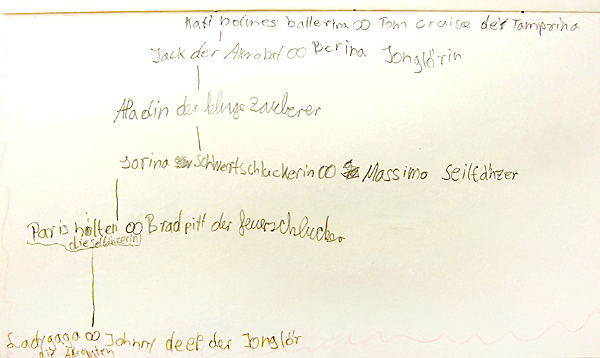 Kati holmes ballerina ∞ Tom cruise der Tamprina
Jack der Akrobat ∞ Berina Jonglörin
Aladin der kluge Zauberer
Jorina Schwertschluckerin ∞ Massimo Seiltänzer
Paris hilten ∞ Bradpitt der feuerschlucker
die seiltänzerin
Ladygaga ∞ Johnny deep der Jonglör
die